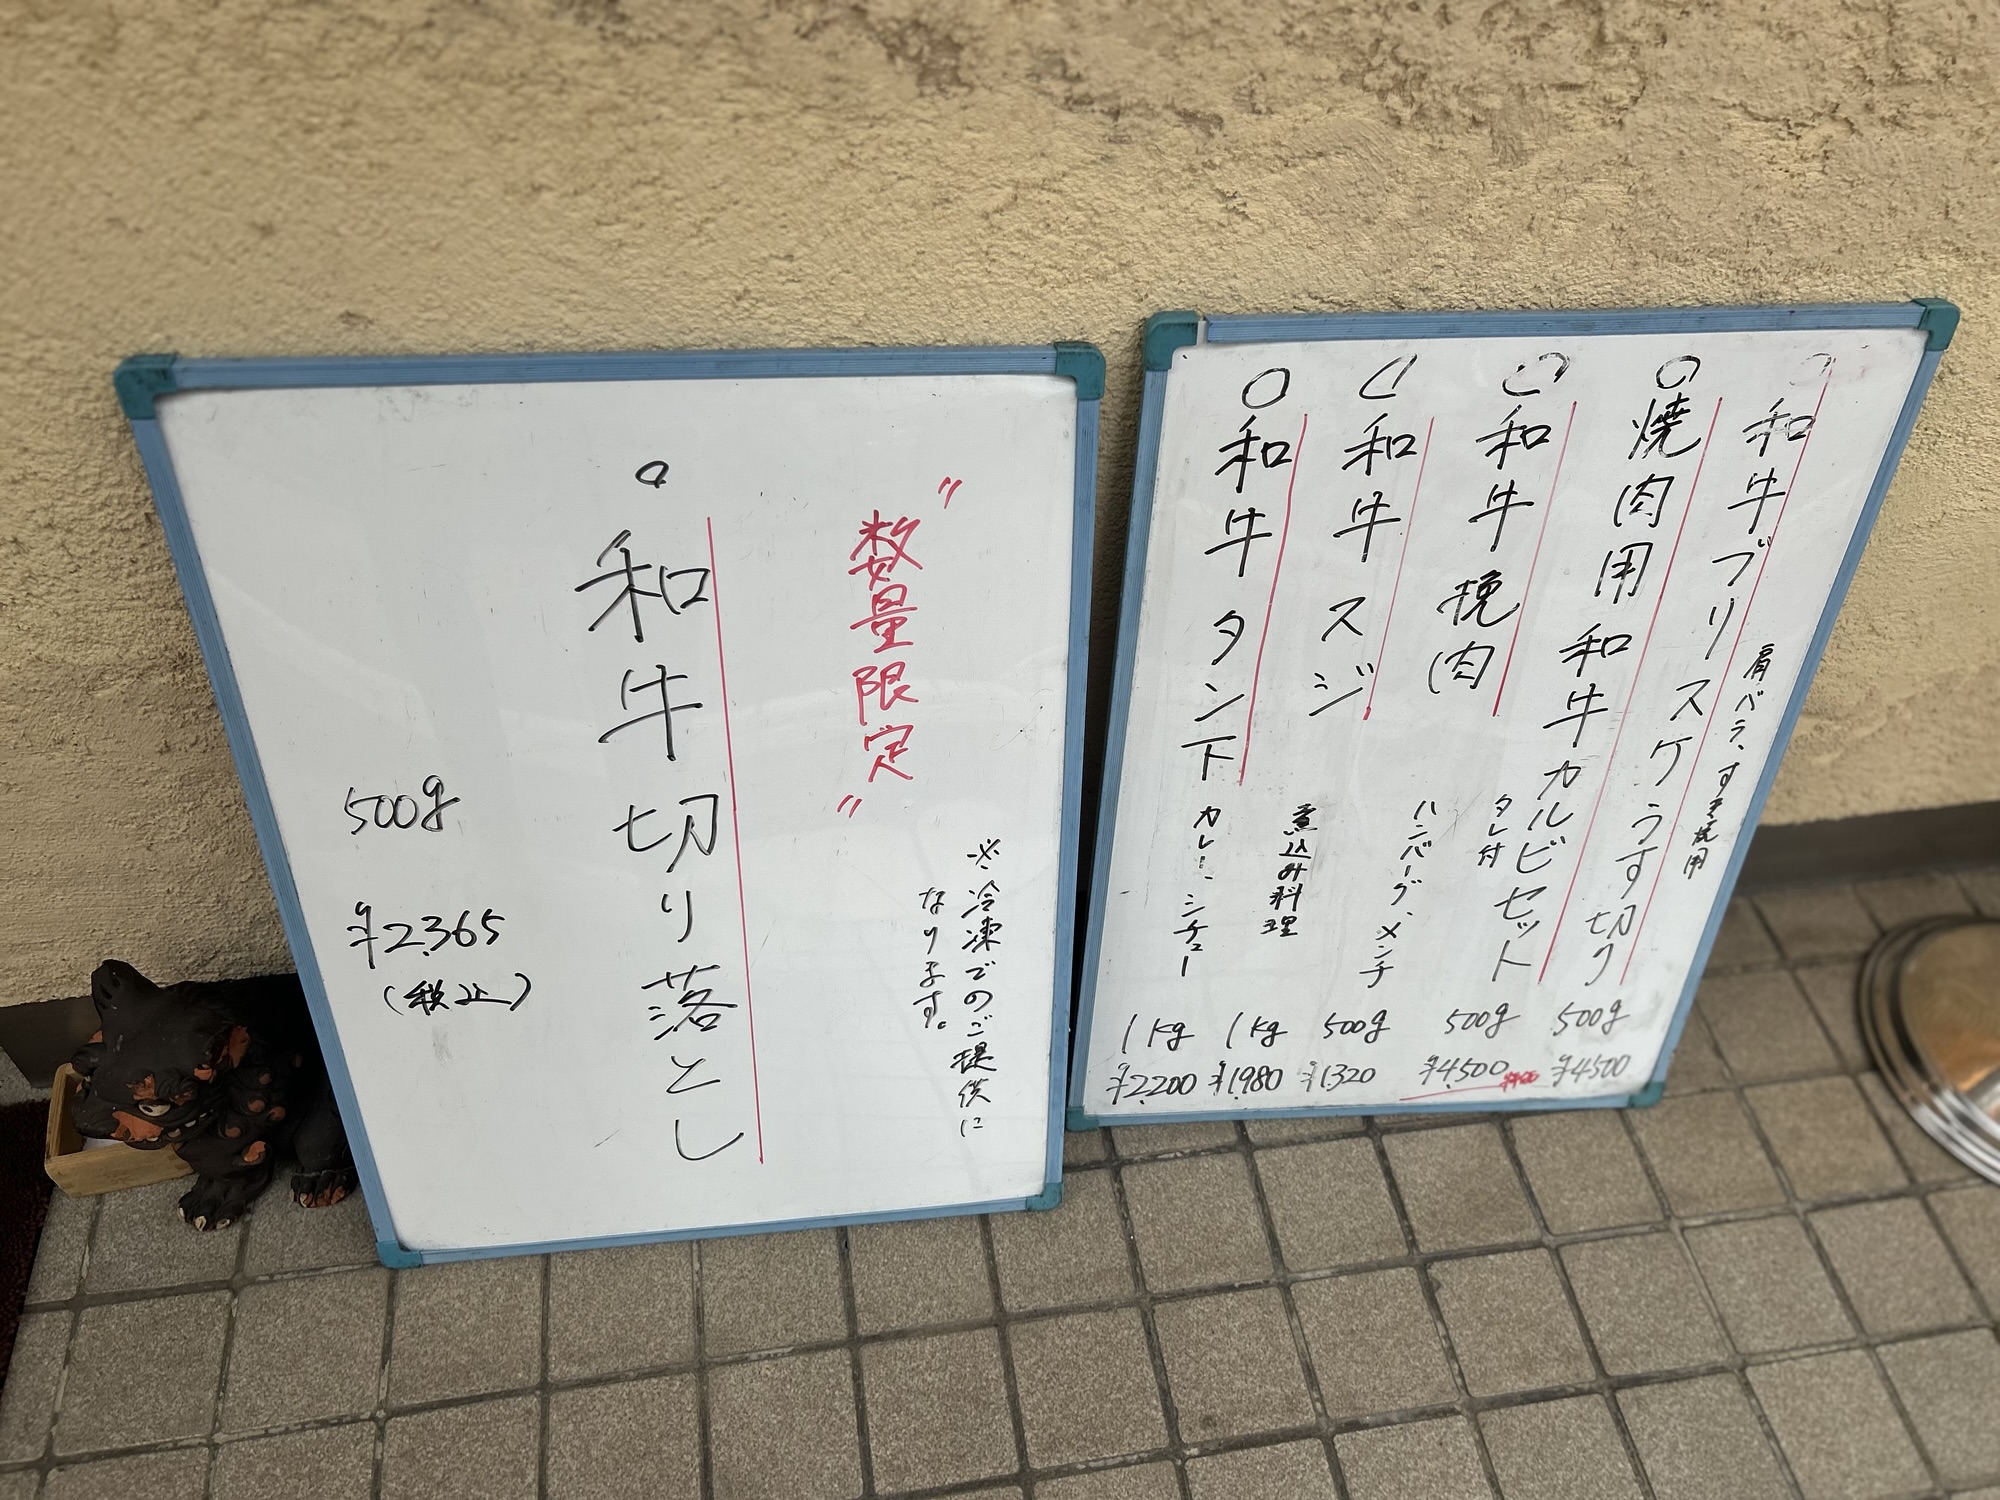 〃数量限定〃
※冷凍でのご提供に
なります。
○和牛切り落とし
500g
¥2,365
(税込)
○和牛ブリスケうす切り
肩バラ、すき焼用
500g
¥4500
○焼肉用和牛カルビセット
タレ付
500g
¥4,500
○和牛挽肉
ハンバーグ、メンチ
500g
¥1,320
○和牛スジ
煮込み料理
1kg
¥1,980
○和牛タン下
カレー、シチュー
1kg
¥2,200